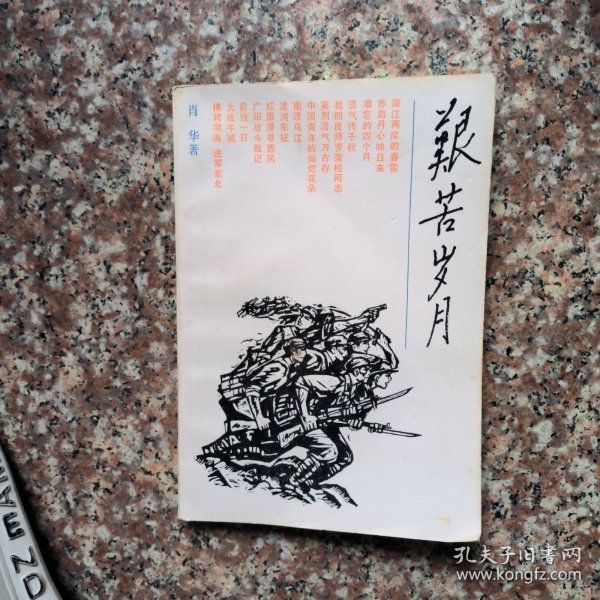 艰苦岁月
潋江两岸的春雷
赤血丹心映日来
难忘的四个月
浩气传千秋
我的良师罗荣桓同志
英烈浩气万古存
中国青年的灿烂花朵
南渡乌江
渡河东征
红旗漫卷西风
广阳战斗散记
前线一日
大战午城
横跨渤海 进军东北
肖华著
END
孔夫子旧书网
www.kongfz.com